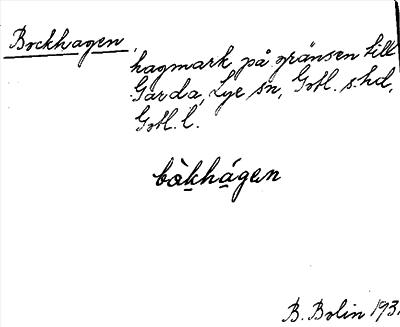 Bockhagen,
hagmark på gränsen till
Garda, Lye sn, Gotl. s. hd,
Gotl. l.
bòkhágen
B. Bolin 193